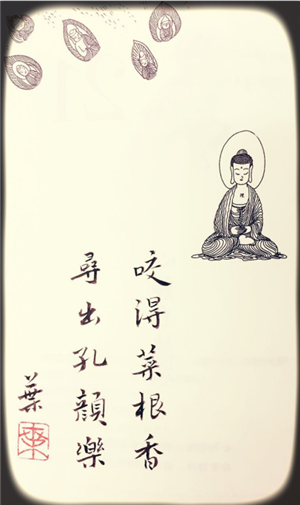 咬得菜根香
尋出孔顏樂
葉